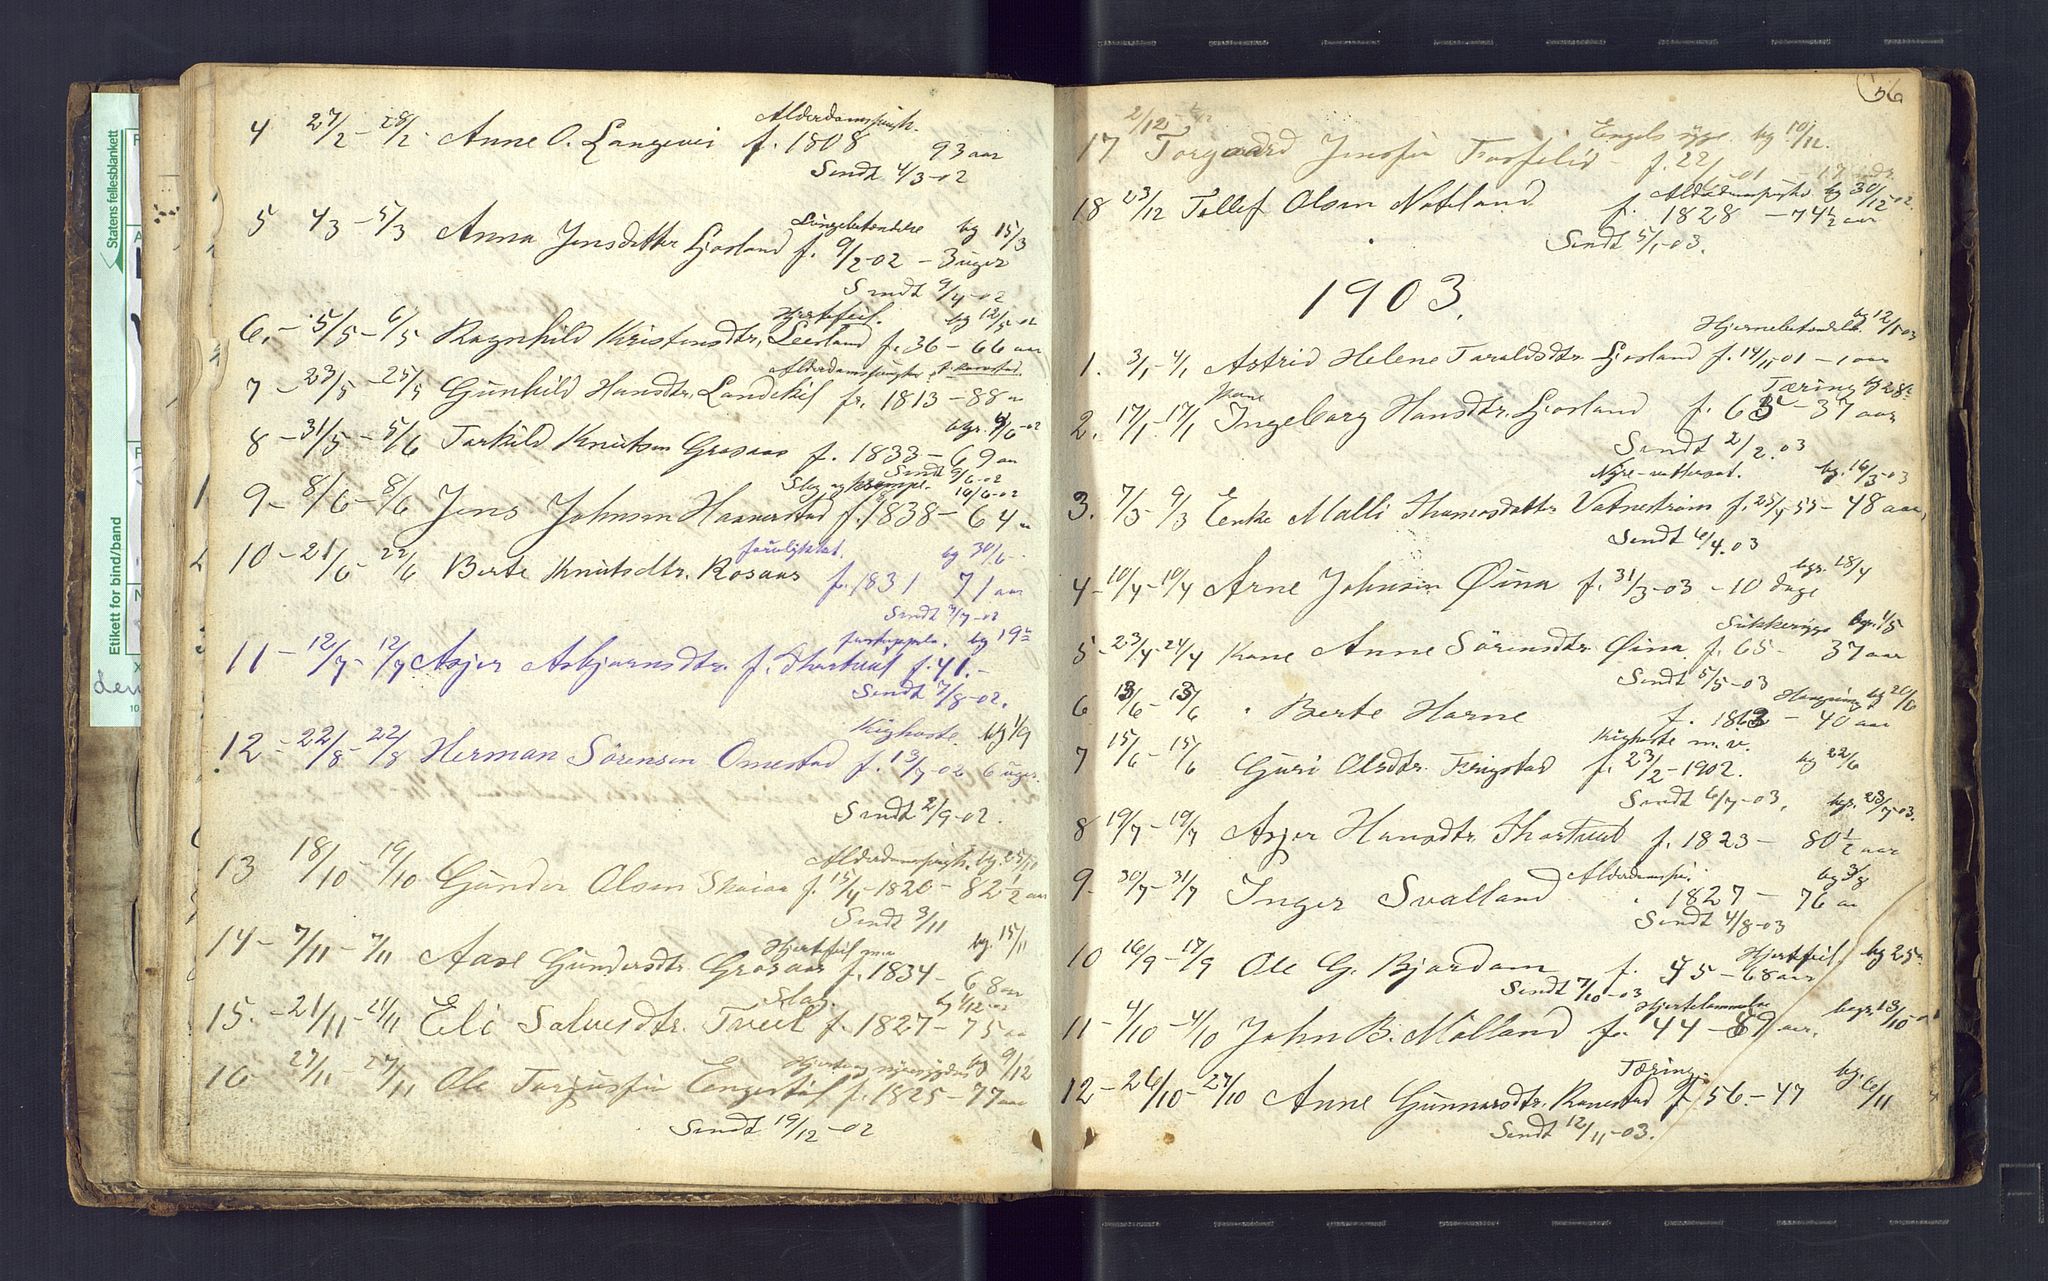 Statens fellesblankett
Etikett for bind/band
Alderdomssvagh.
4 27/2 – 28/2 Anne O. Langevei f. 1808 93 aar
Sendt 4/3-02
Lungebetændelse bg 15/3
5 4/3 – 5/3 Anna Jensdatter Ljosland f. 9/2-02 – 3 uger
Sendt 9/4-02
Hjertefeil. bg 12/5-02
6. – 5/5 – 6/5 Ragnhild Kristensdtr. f. 36 – 66 aar
7 – 23/5 – 25/5 Gunhild Hansdtr. Landeskil f. 1813 – 88
bgr. 4/6-02
8 – 31/5 – 5/6 Tarkild Knutsen Grosaas f. 1833 – 69 aar
Sendt 9/6-02
Slag og krampe. 16/6-02
9 – 8/6 – 8/6 Jens Johnsen Haanestad f. 1838 – 64
forulykket. bg 30/6
10 – 21/6 – 22/6 Berte Knutsdtr. Rosaas f. 1831 71 aar
Sendt 7/7-02
bg 19
11 – 12/7 – 12/7 Asjer Asbjørnsdtr. f. Thortveit f. 41. –
Sendt 7/8-02.
Kighoste. bg 1/9
12 – 22/8 – 22/8 Herman Sörensen Omestad f. 13/7-02 6 uger.
Sendt 2/9-02.
Alderdomssvagh. bg. 25/10
13 18/10 – 19/10 Gunder Olsen Skaiaa f. 15/4-1820 – 82 1/2 aar
Sendt 3/11
Hjertefeil bg. 15/11
14 – 7/11 – 7/11 Aase Gundersdtr. Grosaas f. 1834 – 68 aar
Slag. bg 1/12-02
15. – 21/11 – 21/11 Eli Salvesdtr. Tveit f. 1827 – 75 aa
bg 9/12
16 – 27/11 – 27/11 Ole Torjussen Engestöl f. 1825 – 77 aar
Sendt 19/12-02
56
2/12 Engelsk syge. bg 10/12.
17 Torgaard f. 22/
Alderdomssvaghed bg 30/12-02.
18 23/12 Tollef Olsen Nateland f. 1828 – 74 1/2 aar
Sendt 5/1-03.
1903.
Hjernebetændelse. bg 12/1-03
1. 3/1 – 4/1 Astrid Helene Taraldsdtr. Ljosland f. 14/11-01 – 1 aar
Kone Tæring bg 28
2. 17/1 – 17/1 Ingeborg Hansdtr. Ljosland f. 65 – 37 aar
Sendt 2/2.03
bg. 16/3-03
3. 7/3 9/3 Enke Malli Thomasdatter Vatneström f. 25/4 55 – 48 aar,
Sendt 6/4.03
bgr. 18/4
4 – 10/4 – 10/4 Arne Johnsen Øina f. 31/3-03 – 10 dage
Sukkersyge bgr. 1/5
5 – 23/4 – 24/4 Kone Anne Sörensdtr. Øina f. 65 – 37 aar
Sendt 5/5-03
bg 20/6
6 13/6 – 13/6 Berte Horne f. 1863 – 40 aar
Kighoste m.v.
7 15/6 – 15/6 Guri Olsdtr. Frigstad f. 23/2-1902. bg 22/6
Sendt 6/7-03. bgr. 23/7-03.
8 19/7 – 19/7 Asjer Hansdtr. Thortveit f. 1823 – 80 1/2 aar
Alderdomssv. bg 3/8
9. 30/7 – 31/7 Inger Svalland 1827 – 76 aa
Sendt 4/8-03
Hjertfeil. bg 25
10 16/9 – 17/9 Ole G. Bjordam f. 45 – 68 aar
Sendt 7/10-03
Hjertelammelse bgr. 13/10-03
11 – 4/10 – 4/10 John B. Mölland f. 44 – 59 aar.
Tæring. bg. 6/11
12 – 26/10 – 27/10 Anne Gunnarsdtr. Ranestad f. 56. – 47
Sendt 12/11-03.